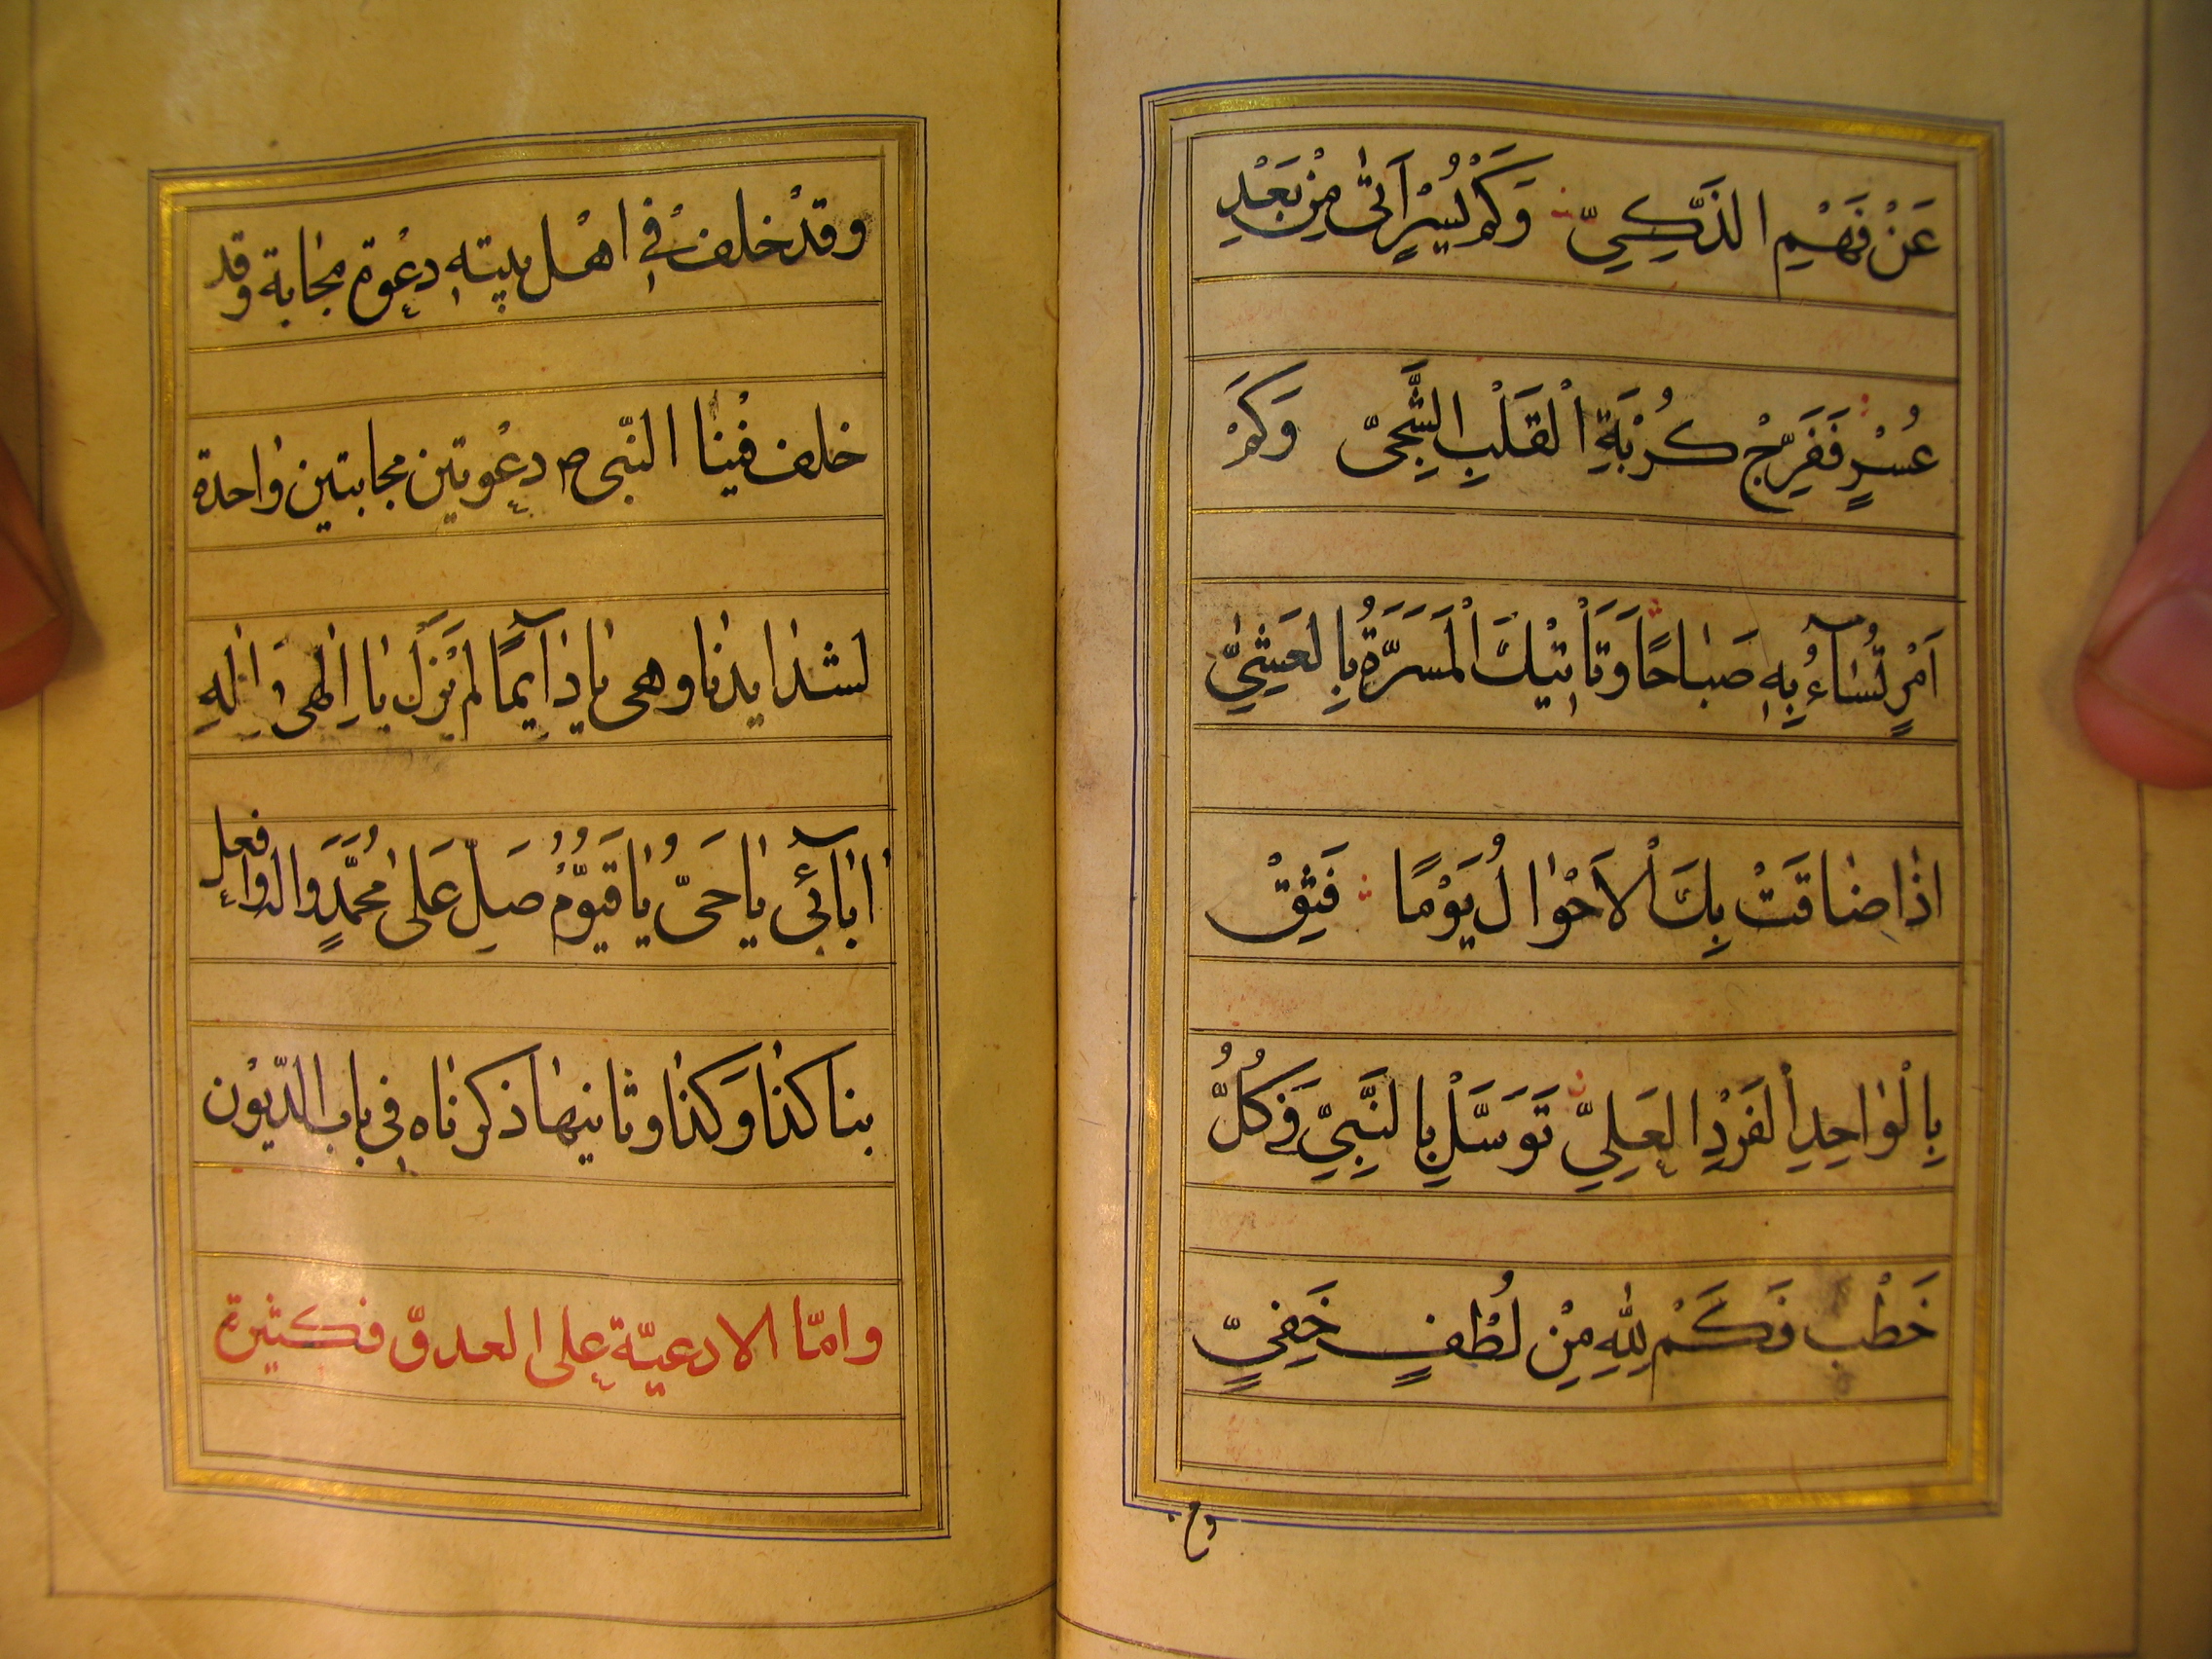 عَنْ فَهْمِ الذَّكِيِّ وَكَمْ يُسْرٍ اَتٰى مِنْ بَعْدِ
عُسْرٍ فَفَرِّجْ كُرْبَةِ الْقَلْبِ الشَّجِيِّ وَكَمْ
اَمْرٍ تُسٰآءُ بِهٖ صَبٰاحًا وَتَاْتِيْكَ الْمَسَرَّةُ بِالعَشِيِّ
اذٰا ضٰاقَتْ بِكَ الْاَحْوٰالُ يَوْمًا فَثِقْ
بِالْوٰاحِدِ الْفَرْدِ العَلِيِّ تَوَسَّلْ بِالنَّبِيِّ فَكُلُّ
خَطْبٍ فَكَمْ لِلّٰهِ مِنْ لُطْفٍ خَفِيٍّ
وقد
وقدْ خلف فى اهْل بيتهٖ دعْوة مجٰابة وقد
خلف فيْنٰا النّبى ص دعْوتين مجابتين وٰاحدة
لشدٰايدنٰا وهى يٰا دٰآيمًا لم يَزَل يٰا اِلٰهى وَاِلٰهِ
اٰبٰآئى يٰا حَىُّ يٰا قَيّوُمُ صَلِّ عَلىٰ مُحَمَّدٍ وَاله وافعل
بنا كذٰا وَكذٰا وثانيهٰا ذكرنٰاه فى باب الدّيوْن
وامّا الادعيّة على العدوّ فكثيرة